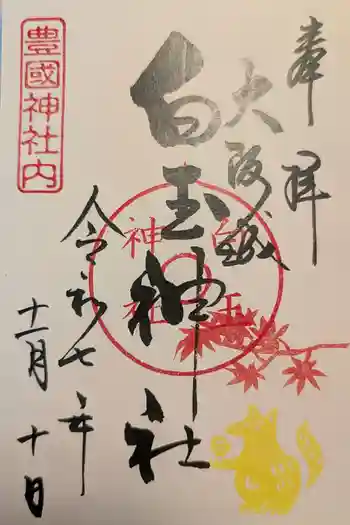 奉拝
大阪城
白玉神社
白玉
神社
豊國神社内
令和七年
十一月十日